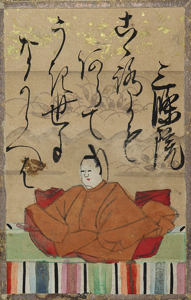 三條院
こゝ路にも
あらて
うき世に
なからへは